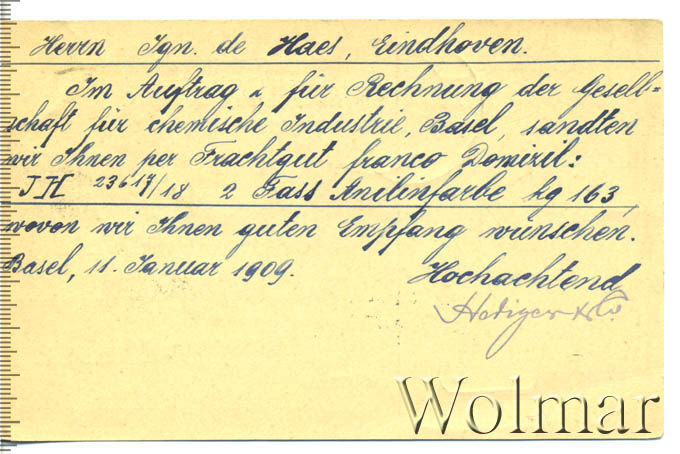 Herrn Ign. de Haes, Eindhoven.
Im Auftrag & für Rechnung der Gesell-
schaft für chemische Industrie, Basel, sandten
wir Ihnen per Frachtgut franco Domizil:
JH 23617/18 2 Fass Anilinfarbe kg 163,
wovon wir Ihnen guten Empfang wünschen.
Basel, 11. Januar 1909. Hochachtend
Hediger & Co
Wolmar